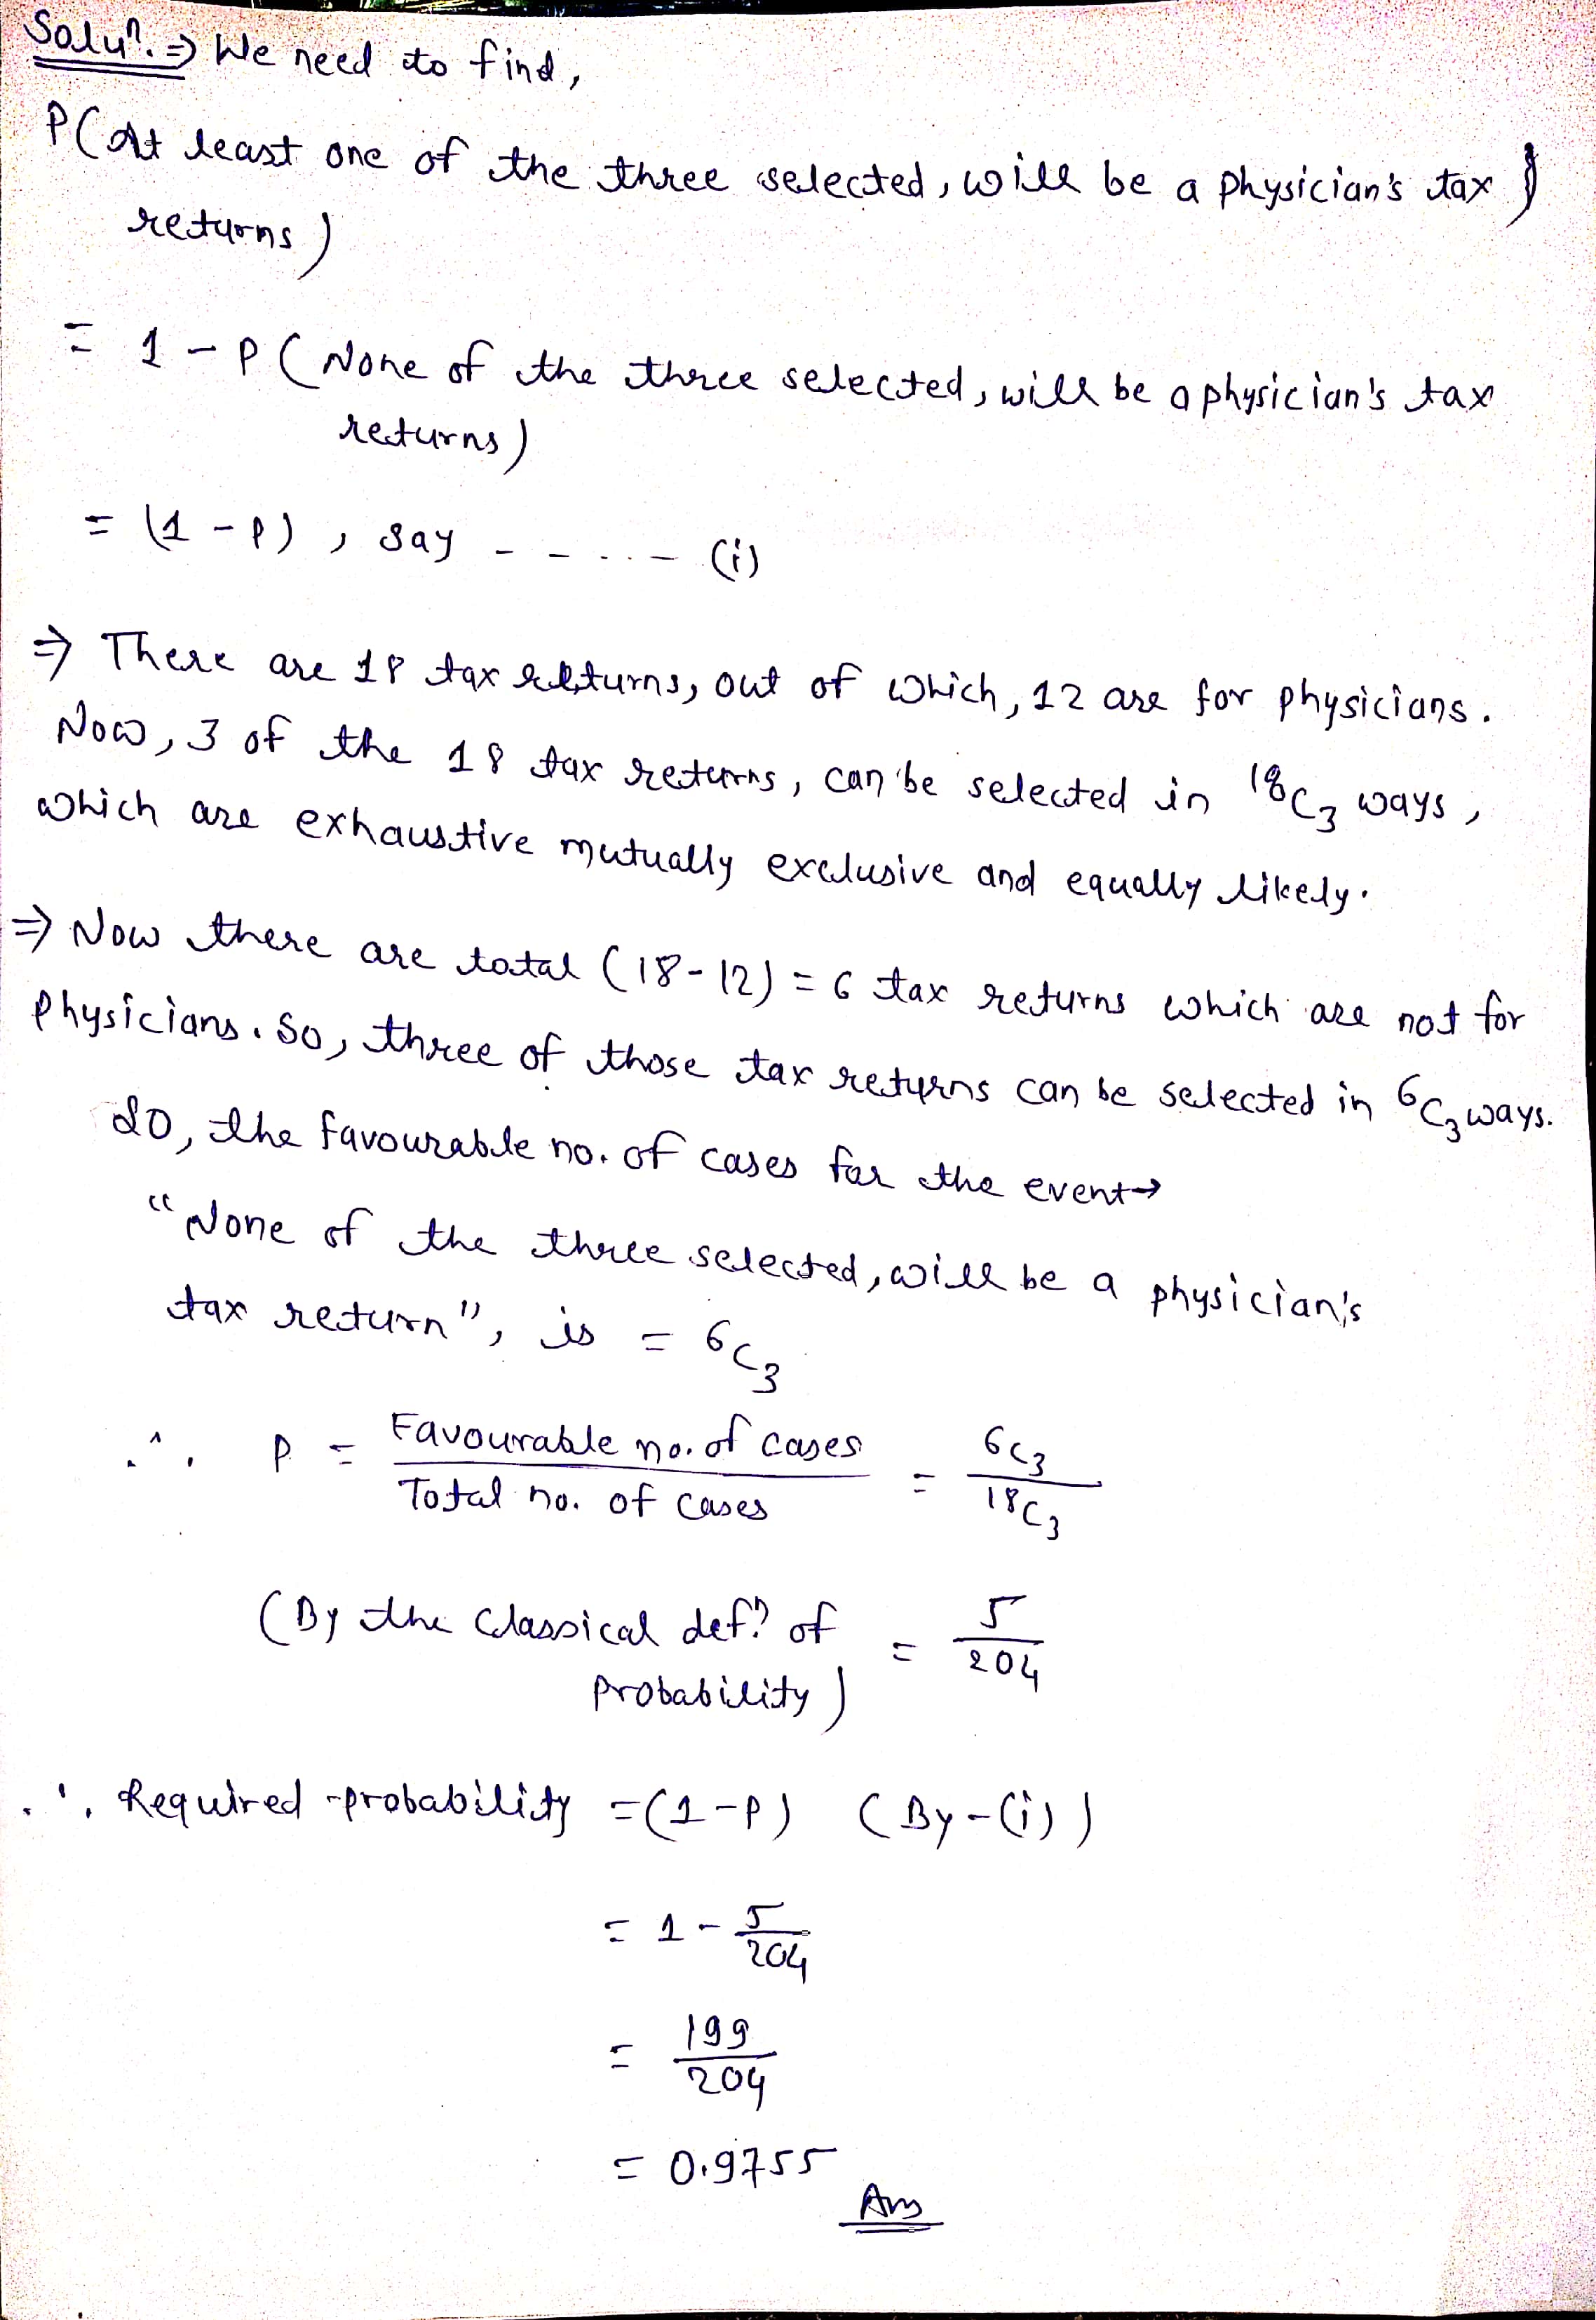 Solun. ⇒ We need to find,
P(At least one of the three selected, will be a physician's tax
returns)
= 1 - P (None of the three selected, will be a physician's tax
returns)
= (1 - P) , say - - ... - (i)
⇒ There are 18 tax returns, out of which, 12 are for physicians.
Now, 3 of the 18 tax returns, can be selected in ¹⁸C₃ ways,
which are exhaustive mutually exclusive and equally likely.
⇒ Now there are total (18-12) = 6 tax returns which are not for
Physicians. So, three of those tax returns can be selected in ⁶C₃ ways.
So, the favourable no. of cases for the event→
"None of the three selected, will be a physician's
tax return", is = ⁶C₃
∴ P = Favourable no. of cases / Total no. of cases = ⁶C₃ / ¹⁸C₃
(By the Classical defn of Probability) = 5/204
∴ Required probability = (1-P) (By-(i))
= 1 - 5/204
= 199/204
= 0.9755
Ans